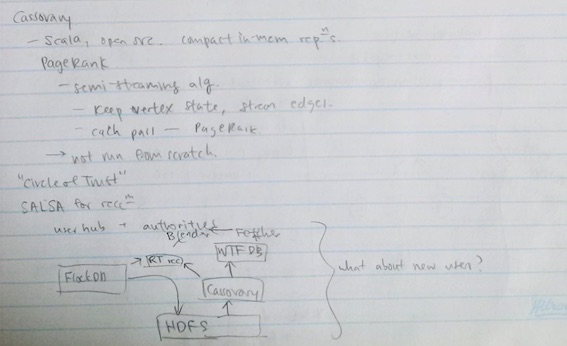 Cassovary
- Scala, open src. compact in-mem repⁿs.
PageRank
- semi-streaming alg.
- Keep vertex state, stream edges.
- each pass - PageRank.
→ not run from scratch.
"Circle of Trust"
SALSA for reccⁿ
user hub + authorities
Blender ← Fetcher
WTF DB
RT rec
FlockDB
Cassovary
HDFS
what about new users?